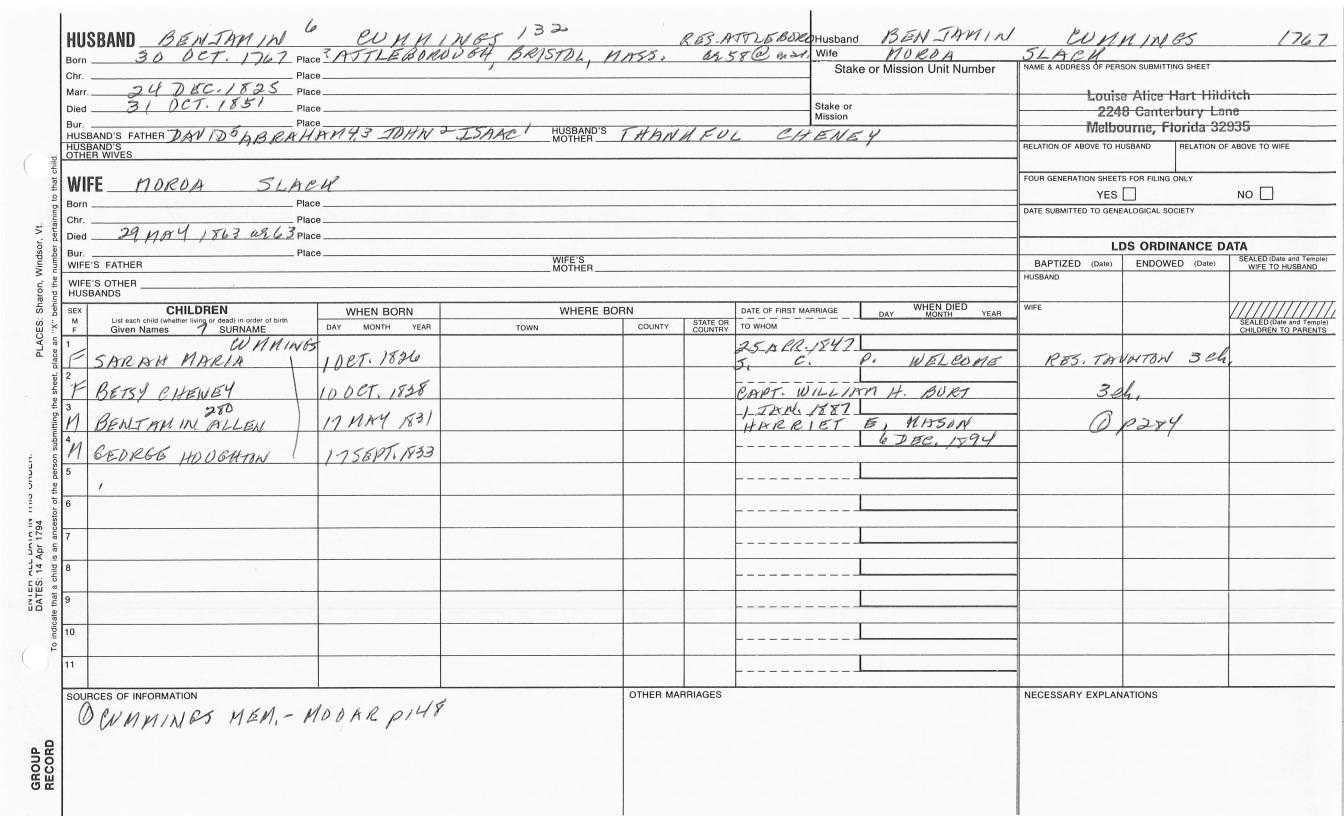 HUSBAND BENJAMIN 6 CUMMINGS 132 RES. ATTLEBORO
Born 30 OCT. 1767 Place ? ATTLEBOROUGH, BRISTOL, MASS. ae 58 @ mar.
Chr. Place
Marr. 24 DEC. 1825 Place
Died 31 OCT. 1851 Place
Bur. Place
HUSBAND'S FATHER DAVID5 ABRAHAM4,3 JOHN2 ISAAC1 HUSBAND'S MOTHER THANKFUL CHENEY
HUSBAND'S OTHER WIVES
Husband BENJAMIN CUMMINGS 1767
Wife MORDA SLACK
Stake or Mission Unit Number
Stake or Mission
NAME & ADDRESS OF PERSON SUBMITTING SHEET
Louise Alice Hart Hilditch
2248 Canterbury Lane
Melbourne, Florida 32935
RELATION OF ABOVE TO HUSBAND RELATION OF ABOVE TO WIFE
FOUR GENERATION SHEETS FOR FILING ONLY
YES NO
DATE SUBMITTED TO GENEALOGICAL SOCIETY
WIFE MORDA SLACK
Born Place
Chr. Place
Died 29 MAY 1863 ae 63 Place
Bur. Place
WIFE'S FATHER WIFE'S MOTHER
WIFE'S OTHER HUSBANDS
LDS ORDINANCE DATA
BAPTIZED (Date) ENDOWED (Date) SEALED (Date and Temple) WIFE TO HUSBAND
HUSBAND
WIFE
SEALED (Date and Temple) CHILDREN TO PARENTS
SEX M F
CHILDREN
List each child (whether living or dead) in order of birth
Given Names 7 SURNAME
WHEN BORN
DAY MONTH YEAR
WHERE BORN
TOWN COUNTY STATE OR COUNTRY
DATE OF FIRST MARRIAGE
TO WHOM
WHEN DIED
DAY MONTH YEAR
1 CUMMINGS 25 APR. 1847
F SARAH MARIA 1 OCT. 1826 S. C. P. WELCOME RES. TAUNTON 3 ch.
2
F BETSY CHENEY 10 OCT. 1828 CAPT. WILLIAM H. BURT 3 ch.
3 280 1 JAN. 1887
M BENJAMIN ALLEN 17 MAY 1831 HARRIET E. MASON ① p284
4 6 DEC. 1894
M GEORGE HOUGHTON 17 SEPT. 1833
5
6
7
8
9
10
11
SOURCES OF INFORMATION
① CUMMINGS MEM. - MOOAR p148
OTHER MARRIAGES
NECESSARY EXPLANATIONS
PLACES: Sharon, Windsor, Vt.
ENTER ALL DATA IN THIS ORDER:
DATES: 14 Apr 1794
To indicate that a child is an ancestor of the person submitting the sheet, place an "X" behind the number pertaining to that child.
GROUP RECORD